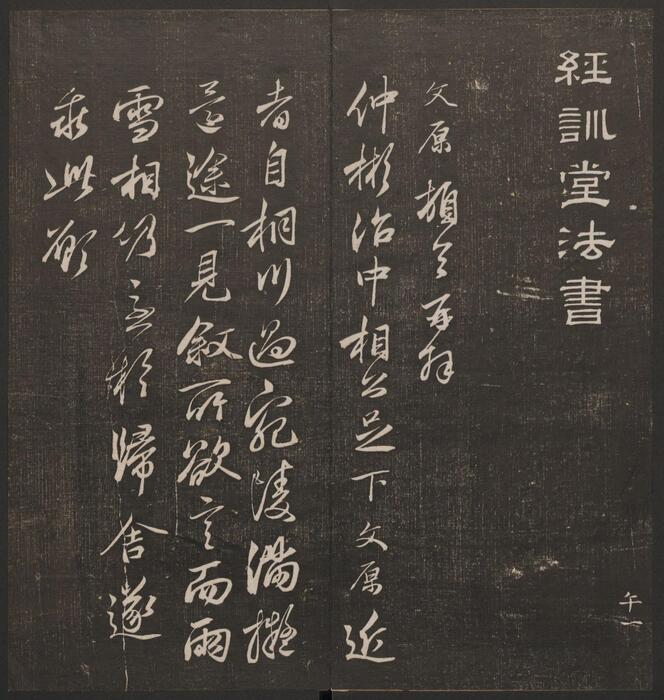 經訓堂法書
文原頓首再拜
仲彬治中相公足下文原近
者自桐川過宛陵滿擬
途一見敘所欲言而雨
雪相仍急於歸舍遂
乖此願
午一